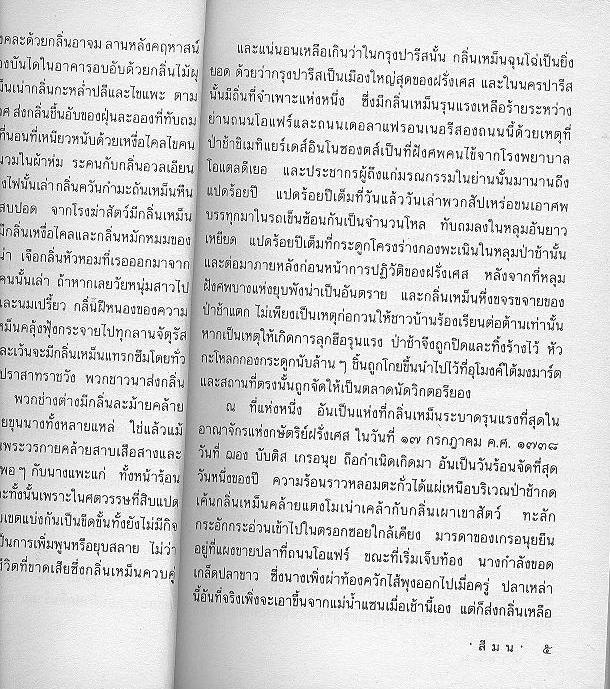 งคละด้วยกลิ่นอาจม ลานหลังคฤหาสน์
องบันไดในอาคารอบอับด้วยกลิ่นไม้ผุ
ม็นเน่ากลิ่นกะหล่ำปลีและไขแพะ ตาม
ส่งกลิ่นขึ้นอับของฝุ่นละอองที่ทับถม
ที่นอนที่เหนียวหนับด้วยเหงื่อไคลไขคน
นวมในผ้าห่ม ระคนกับกลิ่นอวลเอียน
งไฟนั้นเล่ากลิ่นควันกำมะถันเหม็นหืน
สบปอด จากโรงฆ่าสัตว์มีกลิ่นเหม็น
มีกลิ่นเหงื่อไคลและกลิ่นหมักหมมของ
น่า เจือกลิ่นหัวหอมที่เรอออกมาจาก
คนนั้นเล่า ถ้าหากเลยวัยหนุ่มสาวไป
และนมเปรี้ยว กลิ่นฝีหนองของความ
หม็นคลุ้งฟุ้งกระจายไปทุกลานจัตุรัส
ละเว้นจะมีกลิ่นเหม็นแทรกซึมโดยทั่ว
ปราสาทราชวัง พวกชาวนาส่งกลิ่น
พวกช่างต่างมีกลิ่นละม้ายคล้าย
ยขุนนางทั้งหลายแหล่ ใช่แล้วแม้
นพระวรกายคล้ายสาบเสือสางและ
พอ ๆ กับนางแพะแก่ ทั้งหน้าร้อน
ะทั้งนั้นเพราะในศตวรรษที่สิบแปด
บเขตแบ่งกันเป็นขีดขั้นทั้งยังไม่มีกิจ
ป็นการเพิ่มพูนหรือยุบสลาย ไม่ว่า
ชีวิตที่ขาดเสียซึ่งกลิ่นเหม็นควบคู่
และแน่นอนเหลือเกินว่าในกรุงปารีสนั้น กลิ่นเหม็นฉุนโฉ่เป็นยิ่ง
ยอด ด้วยว่ากรุงปารีสเป็นเมืองใหญ่สุดของฝรั่งเศส และในนครปารีส
นั้นมีถิ่นที่จำเพาะแห่งหนึ่ง ซึ่งมีกลิ่นเหม็นรุนแรงเหลือร้ายระหว่าง
ย่านถนนโอแฟร์และถนนเดอลาแฟรอนเนอรีสองถนนนี้ด้วยเหตุที่
ป่าช้าชิเมทิแยร์เดส์อินโนซองต์เป็นที่ฝังศพคนไข้จากโรงพยาบาล
โอแตลดีเยอ และประชากรผู้ถึงแก่มรณกรรมในย่านนั้นมานานถึง
แปดร้อยปี แปดร้อยปีเต็มที่วันแล้ววันเล่าพวกสัปเหร่อขนเอาศพ
บรรทุกมาในรถเข็นซ้อนกันเป็นจำนวนโหล ทับถมลงในหลุมอันยาว
เหยียด แปดร้อยปีเต็มที่กระดูกโครงร่างกองพะเนินในหลุมป่าช้านั้น
และต่อมาภายหลังก่อนหน้าการปฏิวัติของฝรั่งเศส หลังจากที่หลุม
ฝังศพบางแห่งยุบพังน่าเป็นอันตราย และกลิ่นเหม็นหึ่งขจรขจายของ
ป่าช้าแตก ไม่เพียงเป็นเหตุก่อกวนให้ชาวบ้านร้องเรียนต่อต้านเท่านั้น
หากเป็นเหตุให้เกิดการลุกฮือรุนแรง ป่าช้าจึงถูกปิดและทิ้งร้างไว้ หัว
กะโหลกกองกระดูกนับล้าน ๆ ชิ้นถูกโกยขึ้นนำไปไว้ที่อุโมงค์ใต้มงมาร์ต
และสถานที่ตรงนั้นถูกจัดให้เป็นตลาดนัดวิกตอรียอง
ณ ที่แห่งหนึ่ง อันเป็นแห่งที่กลิ่นเหม็นระบาดรุนแรงที่สุดใน
อาณาจักรแห่งกษัตริย์ฝรั่งเศส ในวันที่ ๑๗ กรกฎาคม ค.ศ. ๑๗๓๘
วันที่ ฌอง บับติส เกรอนุย ถือกำเนิดเกิดมา อันเป็นวันร้อนจัดที่สุด
วันหนึ่งของปี ความร้อนราวหลอมตะกั่วได้แผ่เหนือบริเวณป่าช้ากด
เค้นกลิ่นเหม็นคล้ายแตงโมเน่าเคล้ากับกลิ่นเผาเขาสัตว์ ทะลัก
กระอักกระอ่วนเข้าไปในตรอกซอยใกล้เคียง มารดาของเกรอนุยยืน
อยู่ที่แผงขายปลาที่ถนนโอแฟร์ ขณะที่เริ่มเจ็บท้อง นางกำลังขอด
เกล็ดปลาขาว ซึ่งนางเพิ่งผ่าท้องควักไส้พุงออกไปเมื่อครู่ ปลาเหล่า
นี้อันที่จริงเพิ่งจะเอาขึ้นจากแม่น้ำแซนเมื่อเช้านี้เอง แต่ก็ส่งกลิ่นเหลือ
· สีมน · ๕